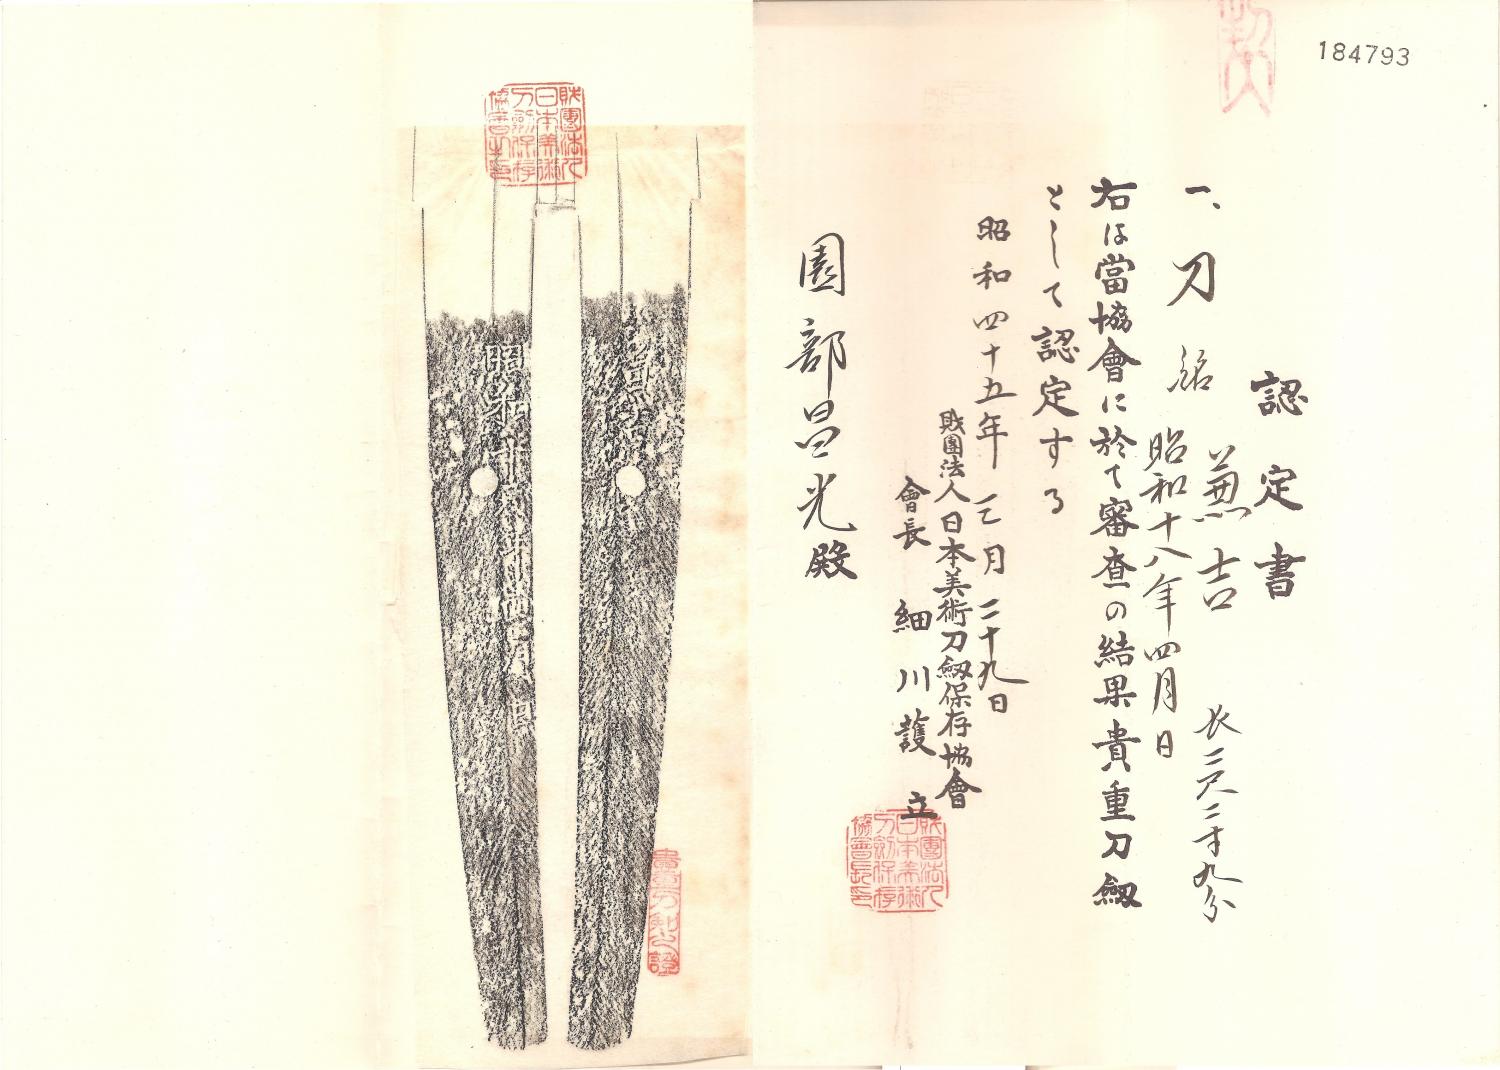 184793
認定書
一、刀 銘 兼吉 長二尺二寸九分
昭和十八年四月日
右は當協會に於て審査の結果貴重刀劔
として認定する
昭和四十五年三月二十九日
財團法人日本美術刀劔保存協會
會長 細川護立
園部昌光殿
財團法人
日本美術
刀劔保存
協會長印
財團法人
日本美術
刀劔保存
貴重刀劔之證